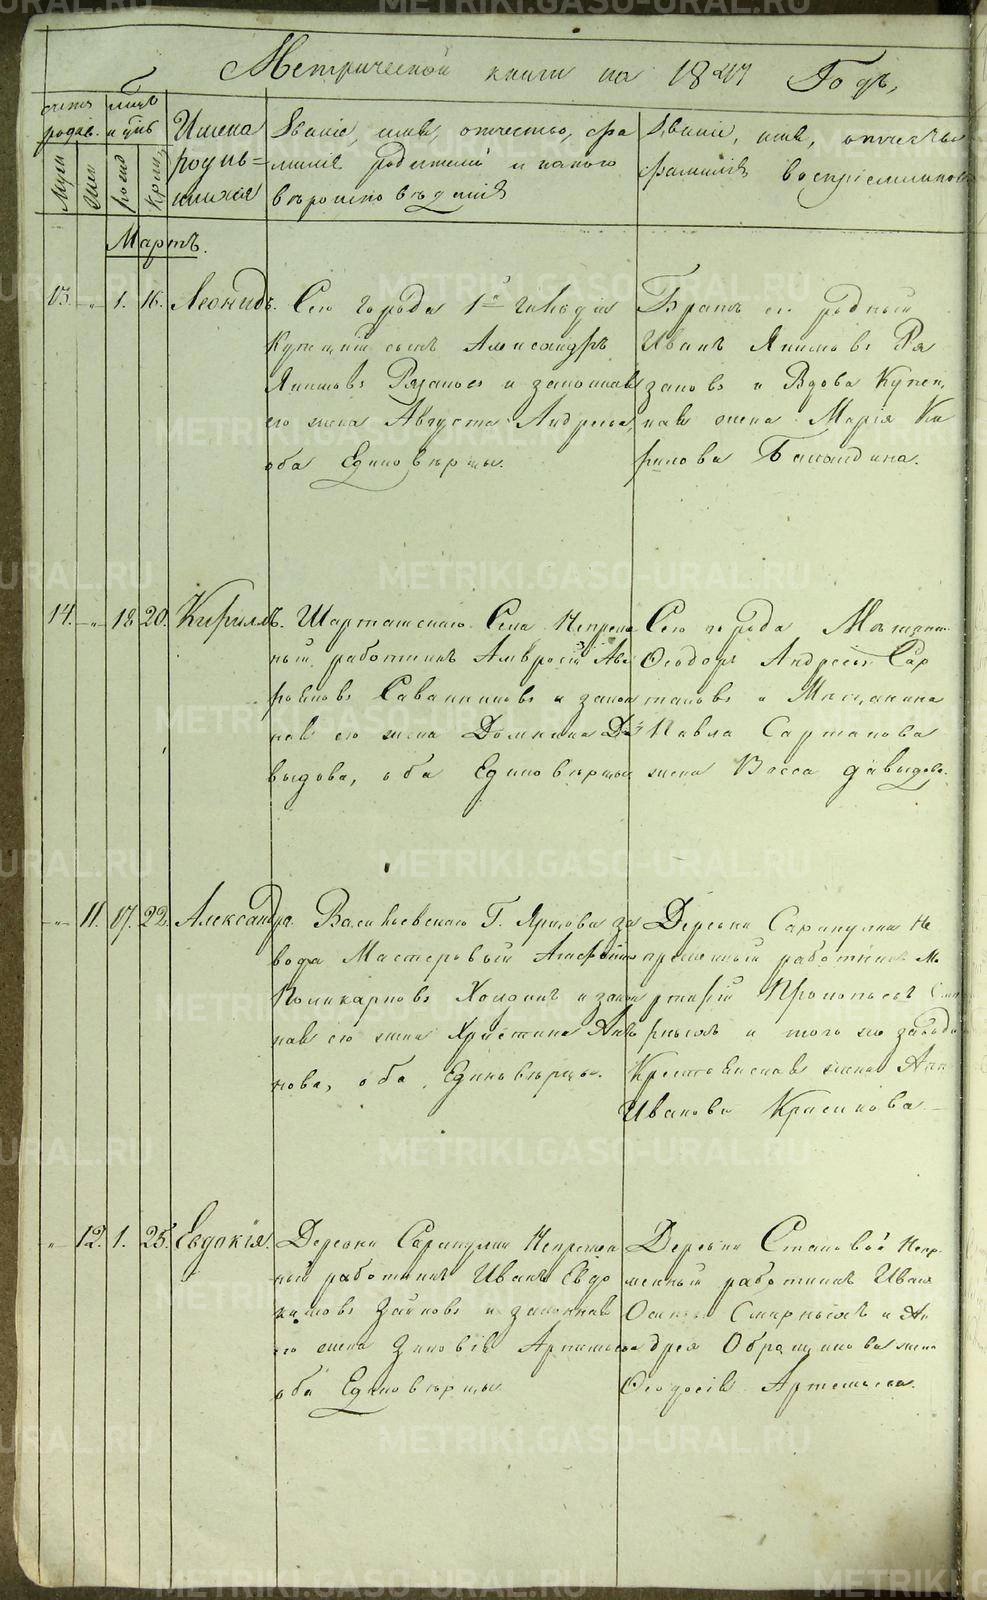 Метрической книги на 1847 Годъ,
счетъ родив.
Муж
Жен
м-цъ и день
рожд
Крещ.
Имена родив=шихся
Званіе, имя, отчество, фамилія родителей и какого вѣроисповѣданія
Званіе, имя, отчество фамилія воспріемниковъ
Мартъ.
13. „ 1. 16. Леонидъ.
Сего города 1й гильдіи
Купецкій сынъ Александръ
Якимовъ Рязановъ и законная
его жена Августа Андреева,
оба Единовѣрцы.
Братъ его родный
Иванъ Якимовъ Ря
зановъ и Вдова Купец
кая жена Марія Ки
рилова Баландина.
14. „ 18 20. Кириллъ.
Шарташскаго Села Непреме
ный работникъ Амвросій Ав
рамовъ Саванинъ и закон
ная его жена Домникия Да
выдова, оба Единовѣрцы
Сего города Мещан.
Ѳеодоръ Андреевъ Сар
тановъ и Мещанина
Павла Сартакова
жена Васса Давыдова.
„ 11. 17. 22. Александра.
Васильевскаго Г. Яковлева за
вода Мастеровый
Поликарповъ Холкинъ и закон
ная его жена Христина Ив
нова, оба Единовѣрцы.
Деревни Сарапулки Не
пременный работникъ
Прокопьевъ См
рныхъ и того же завода
Крестьянская жена Анн
Иванова Красикова
„ 12. 1. 25. Евдокія.
Деревни Сарапулки Непремен
ный работникъ Иванъ Евдо
кимовъ Зайковъ и законная
его жена Зиновія Артемьева
оба Единовѣрцы
Деревни Становой Непре
менный работникъ Иванъ
Осиповъ Смирныхъ и Ан
дрея Образцова жена
Ѳеодосія Артемьева.
METRIKI.GASO-URAL.RU